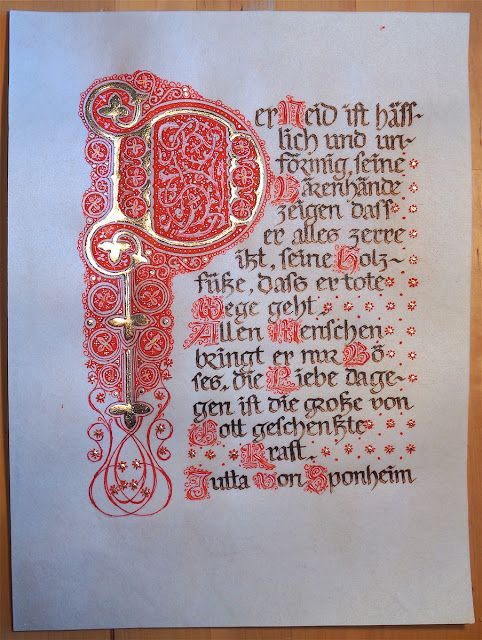 Der Neid ist häss-
lich und un-
förmig, seine
Bärenhände
zeigen dass
er alles zerre
ißt, seine Holz-
füße, dass er tote
Wege geht.
Allen Menschen
bringt er nur Bö-
ses, die Liebe dage-
gen ist die große von
Gott geschenkte
Kraft.
Jutta von Sponheim